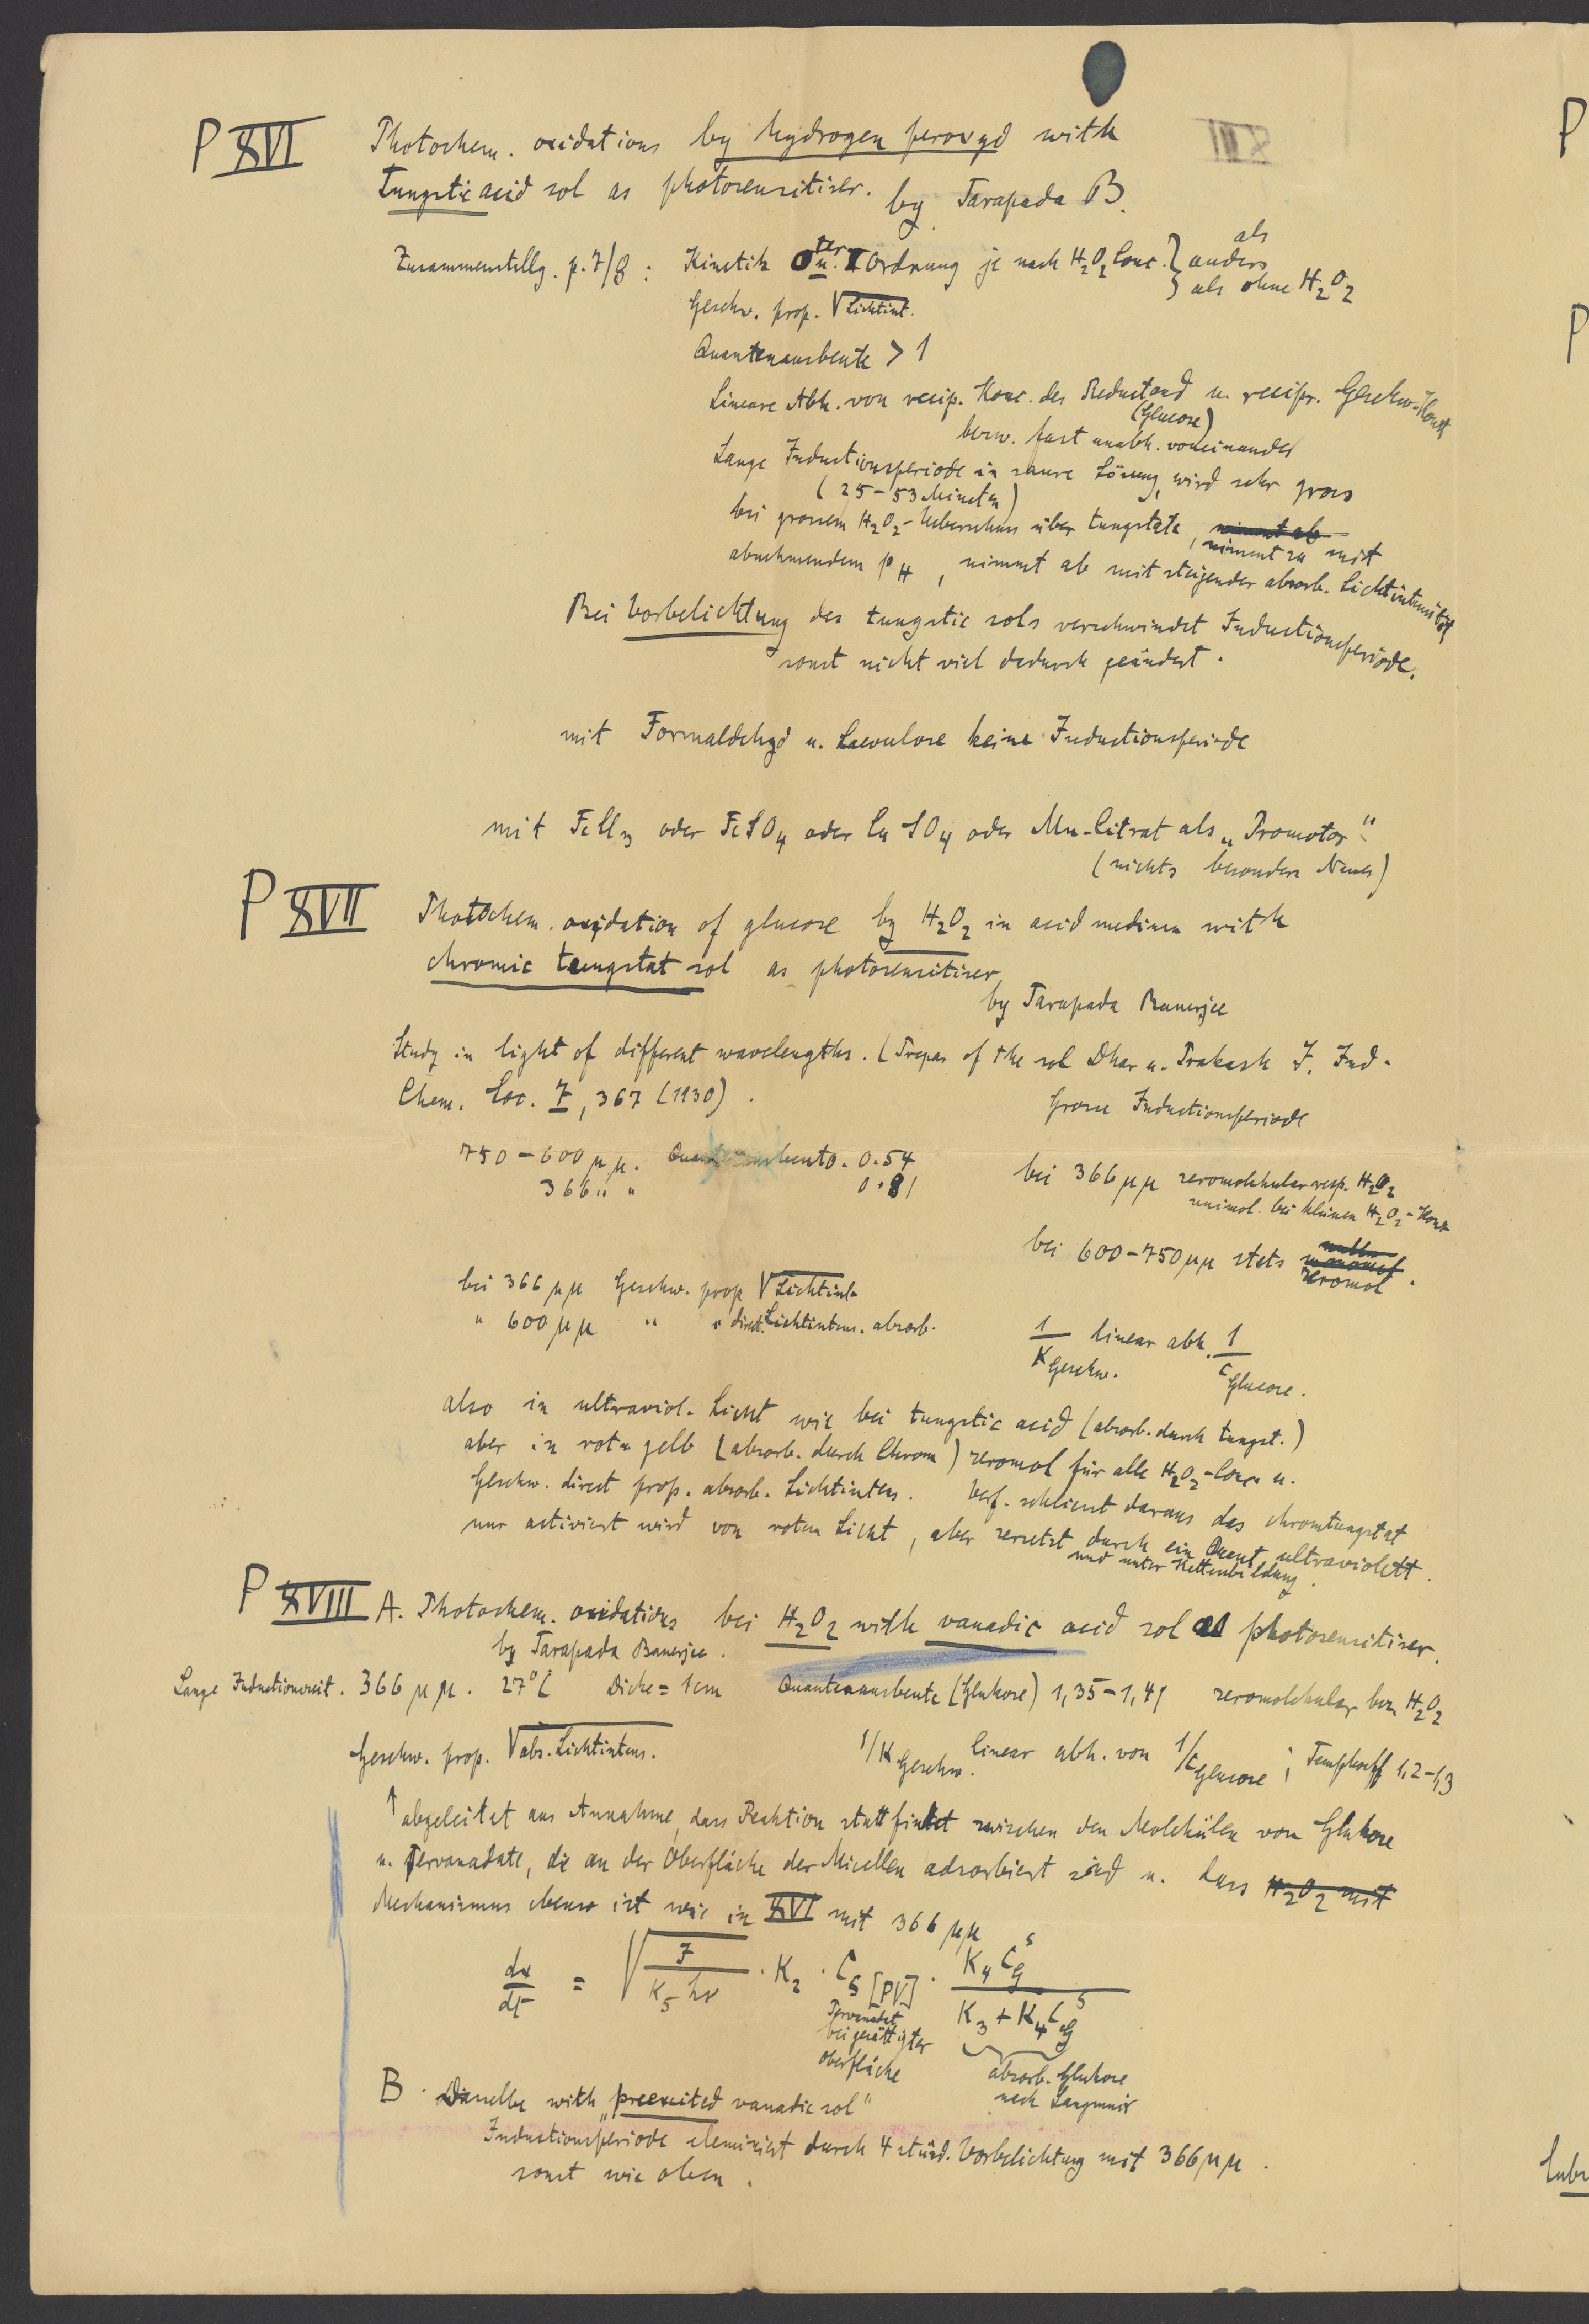 P XVI Photochem. oxidations by hydrogen peroxyd with
Tungstic acid sol as photosensitiser. by Tarapada B.
Zusammenstellg. p. 7/8 : Kinetik 0ter u. I Ordnung je nach H2O2 Conc. } anders
als ohne H2O2
Geschw. prop. √Lichtint.
Quantenausbeute > 1
Lineare Abh. von recip. Konc. des Reductand u. recipr. Geschw-Konst
(Glucose)
bezw. fast unabh. voneinander
Lange Inductionsperiode in saure Lösung, wird sehr gross
(25-53 Minuten)
bei grossem H2O2-Ueberschuss über tungstate, nimmt ab nimmt zu mit
abnehmendem pH, nimmt ab mit steigender absorb. Lichtintensität
Bei Vorbelichtung des tungstic sols verschwindet Inductionsperiode,
sonst nicht viel dadurch geändert.
mit Formaldehyd u. Laevulose keine Inductionsperiode
mit FeCl3 oder FeSO4 oder CuSO4 oder Mn-Citrat als „Promotor“
(nichts besonders Neues)
P XVII Photochem. oxydation of glucose by H2O2 in acid medium with
chromic tungstat sol as photosensitiser
by Tarapada Banerjee
Study in light of different wavelengths. (Prepar of the sol Dhar u. Prakash J. Ind.
Chem. Soc. 7, 367 (1930).
Grosse Inductionsperiode
750-600 μμ. Quantenausbeute. 0.54
366 " " 0.81
bei 366 μμ zeromolekular resp. H2O2
unimol. bei kleinen H2O2-Konz
bei 600-750 μμ stets zeromol.
bei 366 μμ Geschw. prop √Lichtint.
" 600 μμ " " direct. Lichtintens. absorb.
1/K Geschw. linear abh. 1/c Glucose.
also in ultraviol. Licht wie bei tungstic acid (absorb. durch tungst.)
aber in rot u gelb (absorb. durch Chrom) zeromol für alle H2O2-Conz u.
Geschw. direct prop. absorb. Lichtintens. Verf. schliesst daraus das chromtungstat
nur activiert wird von rotem Licht, aber zersetzt durch ein Quant ultraviolett.
und unter Kettenbildung.
P XVIII A. Photochem. oxidations bei H2O2 with vanadic acid sol as photosensitiser.
by Tarapada Banerjee.
Lange Inductionszeit. 366 μμ. 27°C Dicke = 1cm Quantenausbeute (Glukose) 1,35-1,41 zeromolekular bez. H2O2
Geschw. prop. √abs. Lichtintens. 1/K Geschw. linear abh. von 1/c Glucose ; Tempkoeff 1,2-1,3
↑ abgeleitet aus Annahme, dass Reaktion stattfindet zwischen den Molekülen von Glukose
u. Pervanadate, die an der Oberfläche der Micellen adsorbiert sind u. dass H2O2 mit
Mechanismus ebenso ist wie in XVI mit 366 μμ
dx/dt = √(J / K5 hν) · K2 · C5 [PV] · K4 C^s g / K3 + K4 C^s g
Pervanadat
bei gesättigter
Oberfläche
absorb. Glukose
nach Langmuir
B. Dasselbe with „preexcited vanadic sol“
Inductionsperiode eleminiert durch 4 stünd. Vorbelichtung mit 366 μμ.
sonst wie oben.